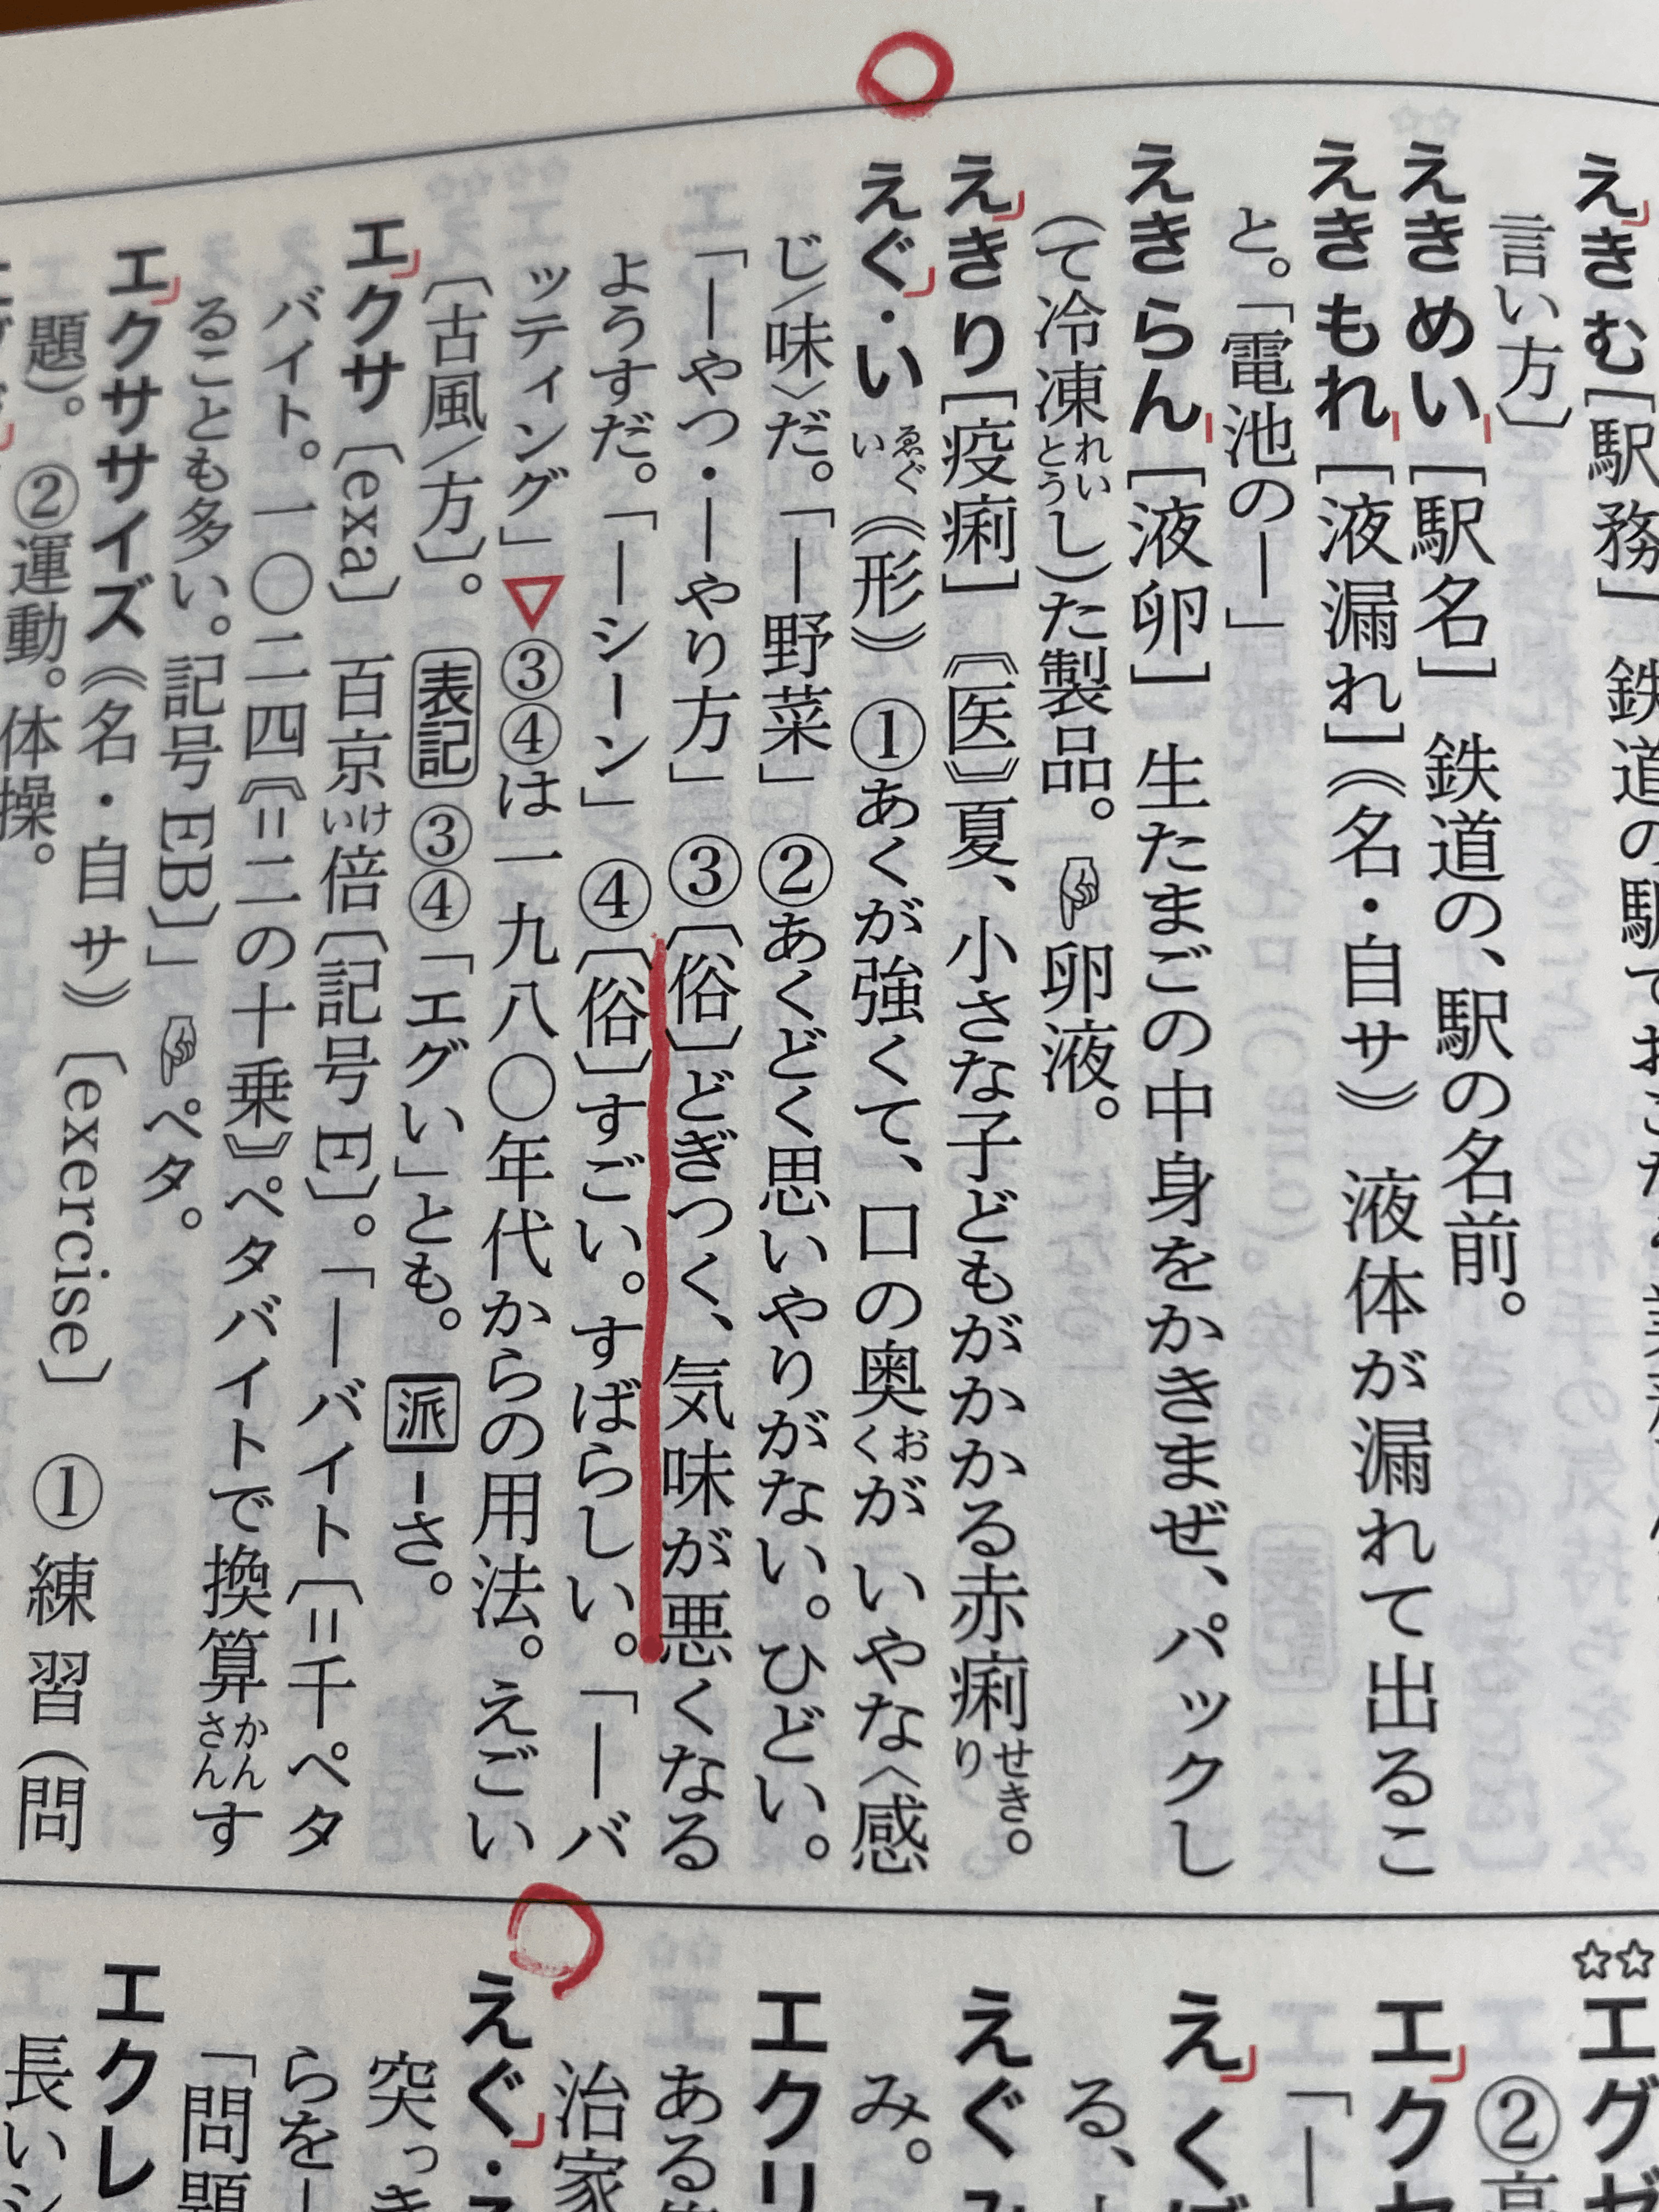 えきむ[駅務] 鉄道の駅でおこ
言い方〕
えきめい[駅名] 鉄道の、駅の名前。
えきもれ[液漏れ]《名・自サ》 液体が漏れて出るこ
と。「電池の―」
えきらん[液卵] 生たまごの中身をかきまぜ、パックし
(て冷凍れいとうし)た製品。☞卵液。
えきり[疫痢]〘医〙夏、小さな子どもがかかる赤痢せきり。
えぐ・いゑぐい《形》 ①あくが強くて、口の奥おくがいやな〈感
じ/味〉だ。「―野菜」 ②あくどく思いやりがない。ひどい。
「―やつ・―やり方」 ③〔俗〕どぎつく、気味が悪くなる
ようすだ。「―シーン」 ④〔俗〕すごい。すばらしい。「―バ
ッティング」▽③④は一九八〇年代からの用法。えごい
〔古風/方〕。 表記③④「エグい」とも。 派―さ。
エクサ〔exa〕 百京けい倍〔記号E〕。「―バイト〔=千ペタ
バイト。一〇二四《=二の十乗》ペタバイトで換算かんさんす
ることも多い。記号EB〕」☞ペタ。
エクササイズ《名・自サ》〔exercise〕 ①練習(問
題)。 ②運動。体操。
☆☆エグゼ
②高
エクセ
「―
えくぼ
る、
えぐみ
み。
エクリ
ある
治家
えぐ・る
突っき
らを―
「問題
エクレ
長いシ